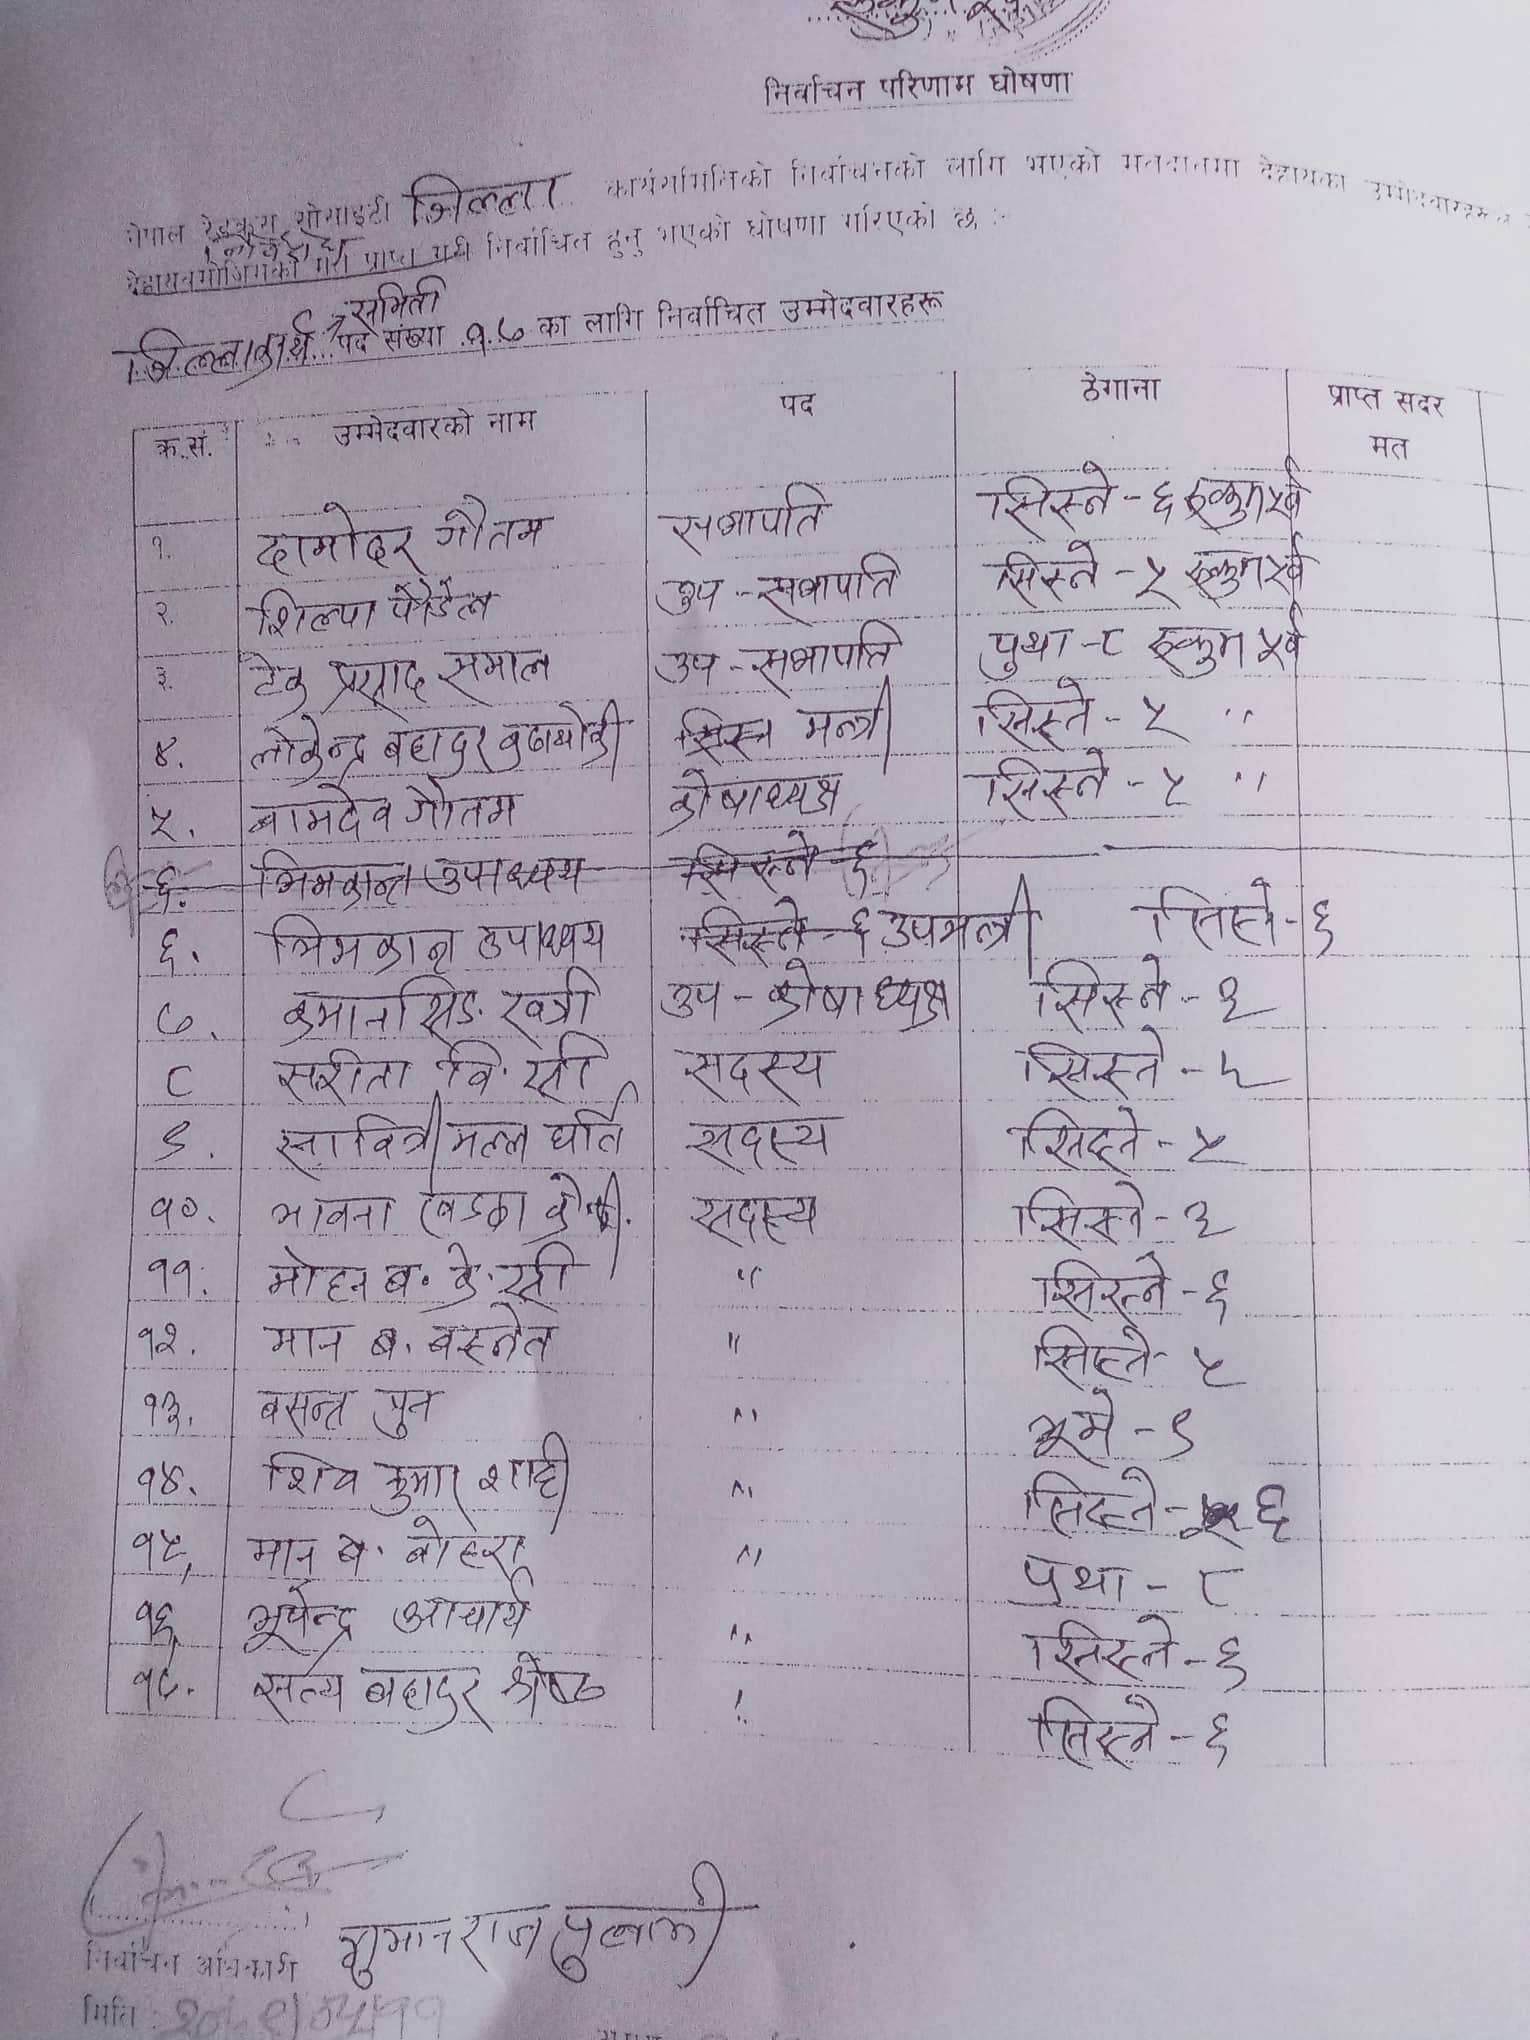 निर्वाचन परिणाम घोषणा
नेपाल रेडक्रस सोसाइटी जिल्ला कार्यसमितिको निर्वाचनको लागि भएको मतदानमा देहायका उम्मेदवारहरूले
देहायबमोजिमको मत प्राप्त गरी निर्वाचित हुनु भएको घोषणा गरिएको छ :-
जिल्ला कार्य समिती पद संख्या १७ का लागि निर्वाचित उम्मेदवारहरू
क्र.सं. उम्मेदवारको नाम पद ठेगाना प्राप्त सदर मत
१. दामोदर गौतम सभापति सिस्ने - ६ रुकुम पूर्व
२. शिल्पा पौडेल उप - सभापति सिस्ने - ५ रुकुम पूर्व
३. टेक प्रसाद समाल उप - सभापति पुथा - ८ रुकुम पूर्व
४. लोकेन्द्र बहादुर बुढाथोकी मन्त्री सिस्ने - ५ "
५. बामदेव गौतम कोषाध्यक्ष सिस्ने - ५ "
६. भिमकान्त उपाध्यय सिस्ने - ६
६. भिमकान्त उपाध्यय सिस्ने - ६ उपमन्त्री सिस्ने - ६
७. कमानसिङ खत्री उप - कोषाध्यक्ष सिस्ने - २
८ सरीता वि.सी सदस्य सिस्ने - ५
९. सावित्री मल्ल घर्ति सदस्य सिस्ने - ५
१०. भावना खड्का सदस्य सिस्ने - २
११. मोहन ब. के.सी " सिस्ने - ६
१२. मान ब. बस्नेत " सिस्ने - ५
१३. बसन्त पुन " भूमे - ९
१४. शिव कुमार शाही " सिस्ने - ६
१५. मान ब. बोहरा " पुथा - ८
१६. भूपेन्द्र आचार्य " सिस्ने - ६
१७. सत्य बहादुर श्रेष्ठ " सिस्ने - ६
निर्वाचन अधिकारी
मिति :